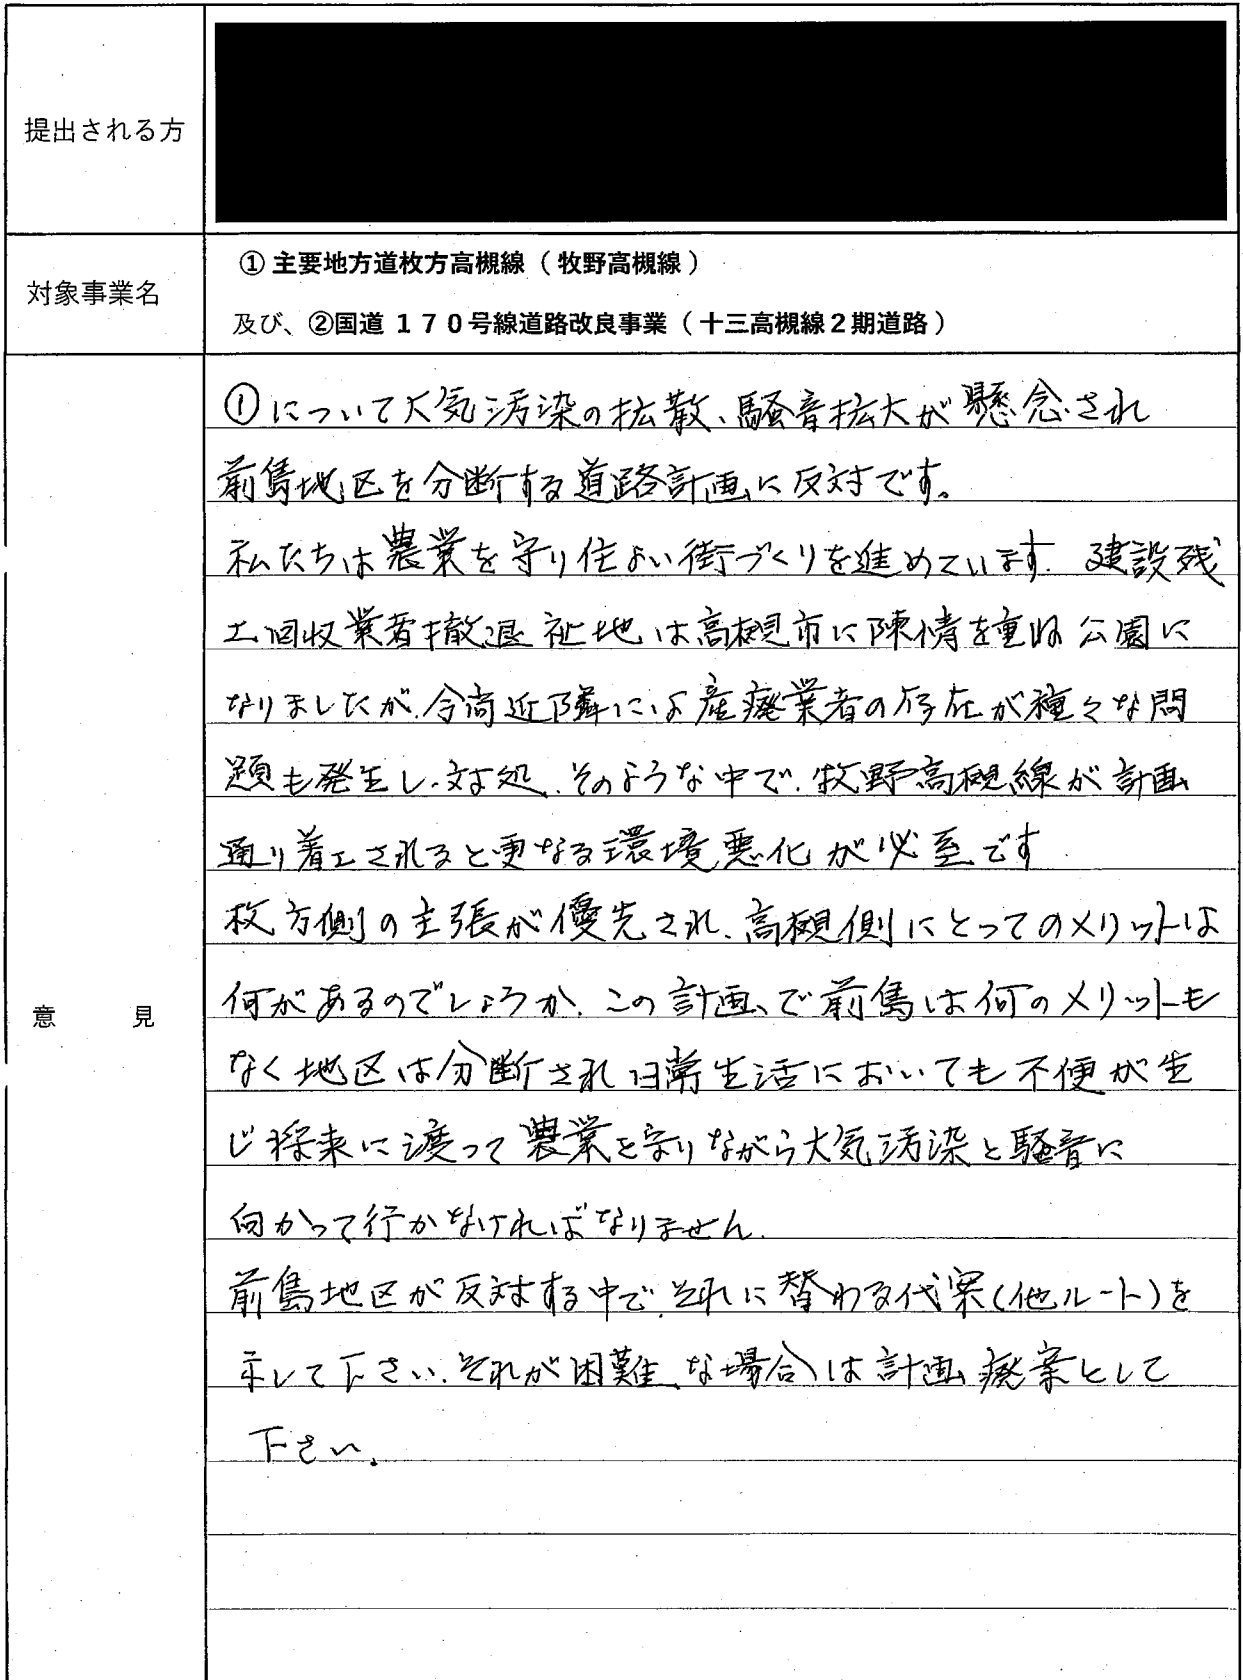 提出される方
対象事業名
①主要地方道枚方高槻線（牧野高槻線）
及び、②国道１７０号線道路改良事業（十三高槻線２期道路）
意見
①について大気汚染の拡散、騒音拡大が懸念され
前島地区を分断する道路計画に反対です。
私たちは農業を守り住よい街づくりを進めています. 建設残
土回収業者撤退祉地は高槻市に陳情を重ね公園に
なりましたが、今尚近隣には産廃業者の存在が種々な問
題も発生し、対処、そのような中で、牧野高槻線が計画
通り着工されると更なる環境悪化が必至です
枚方側の主張が優先され、高槻側にとってのメリットは
何があるのでしょうか、この計画で前島は何のメリットも
なく地区は分断され日常生活においても不便が生
じ将来に渡って農業を守りながら大気汚染と騒音に
向かって行かなければなりません.
前島地区が反対する中で、それに替わる代案(他ルート)を
示して下さい、それが困難な場合は計画廃案として
下さい。